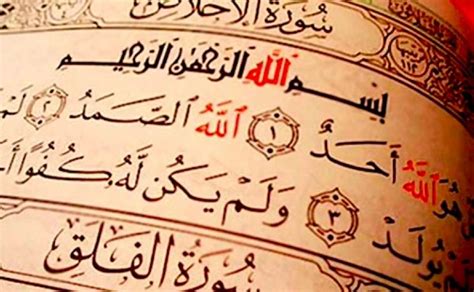 سُورَةُ الْإِخْلَاصِ
بِسْمِ اللَّهِ الرَّحْمَٰنِ الرَّحِيمِ
هُوَ اللَّهُ أَحَدٌ ١ اللَّهُ الصَّمَدُ ٢ لَمْ
يُولَدْ ٣ وَلَمْ يَكُن لَّهُ كُفُوًا
سُورَةُ الْفَلَقِ